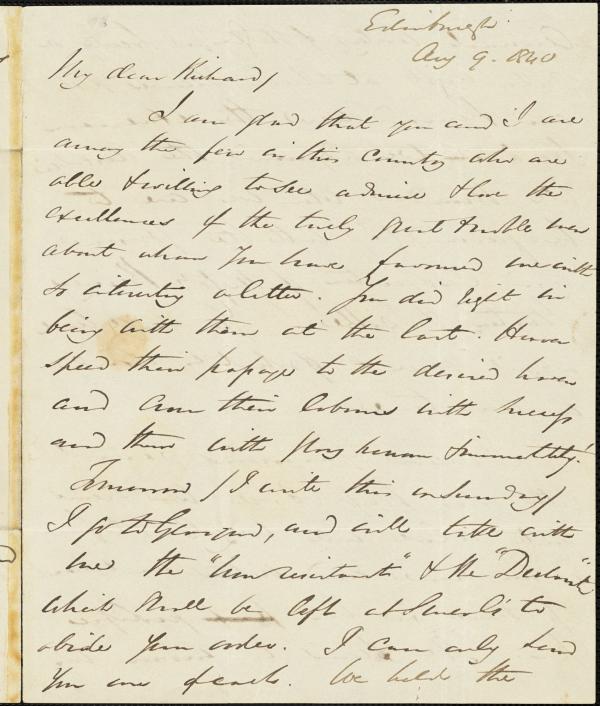 Edinburgh.
Aug 9. 1840
My dear Richard/
I am glad that you and I are
among the few in this Country who are
able & willing to see admire & love the
excellences of the truly great & noble men
about whom you have favoured me with
so interesting a letter. You did right in
being with them at the last. Heaven
speed their passage to the desired haven
and crown their labours with success
and them with glory honour & immortality!
Tomorrow / I write this on Sunday /
I go to Glasgow, and will take with
me the "Non resistants" & the "Declarn"
which shall be left at Smeal's to
abide your order. I can only send
you one of each. We held the